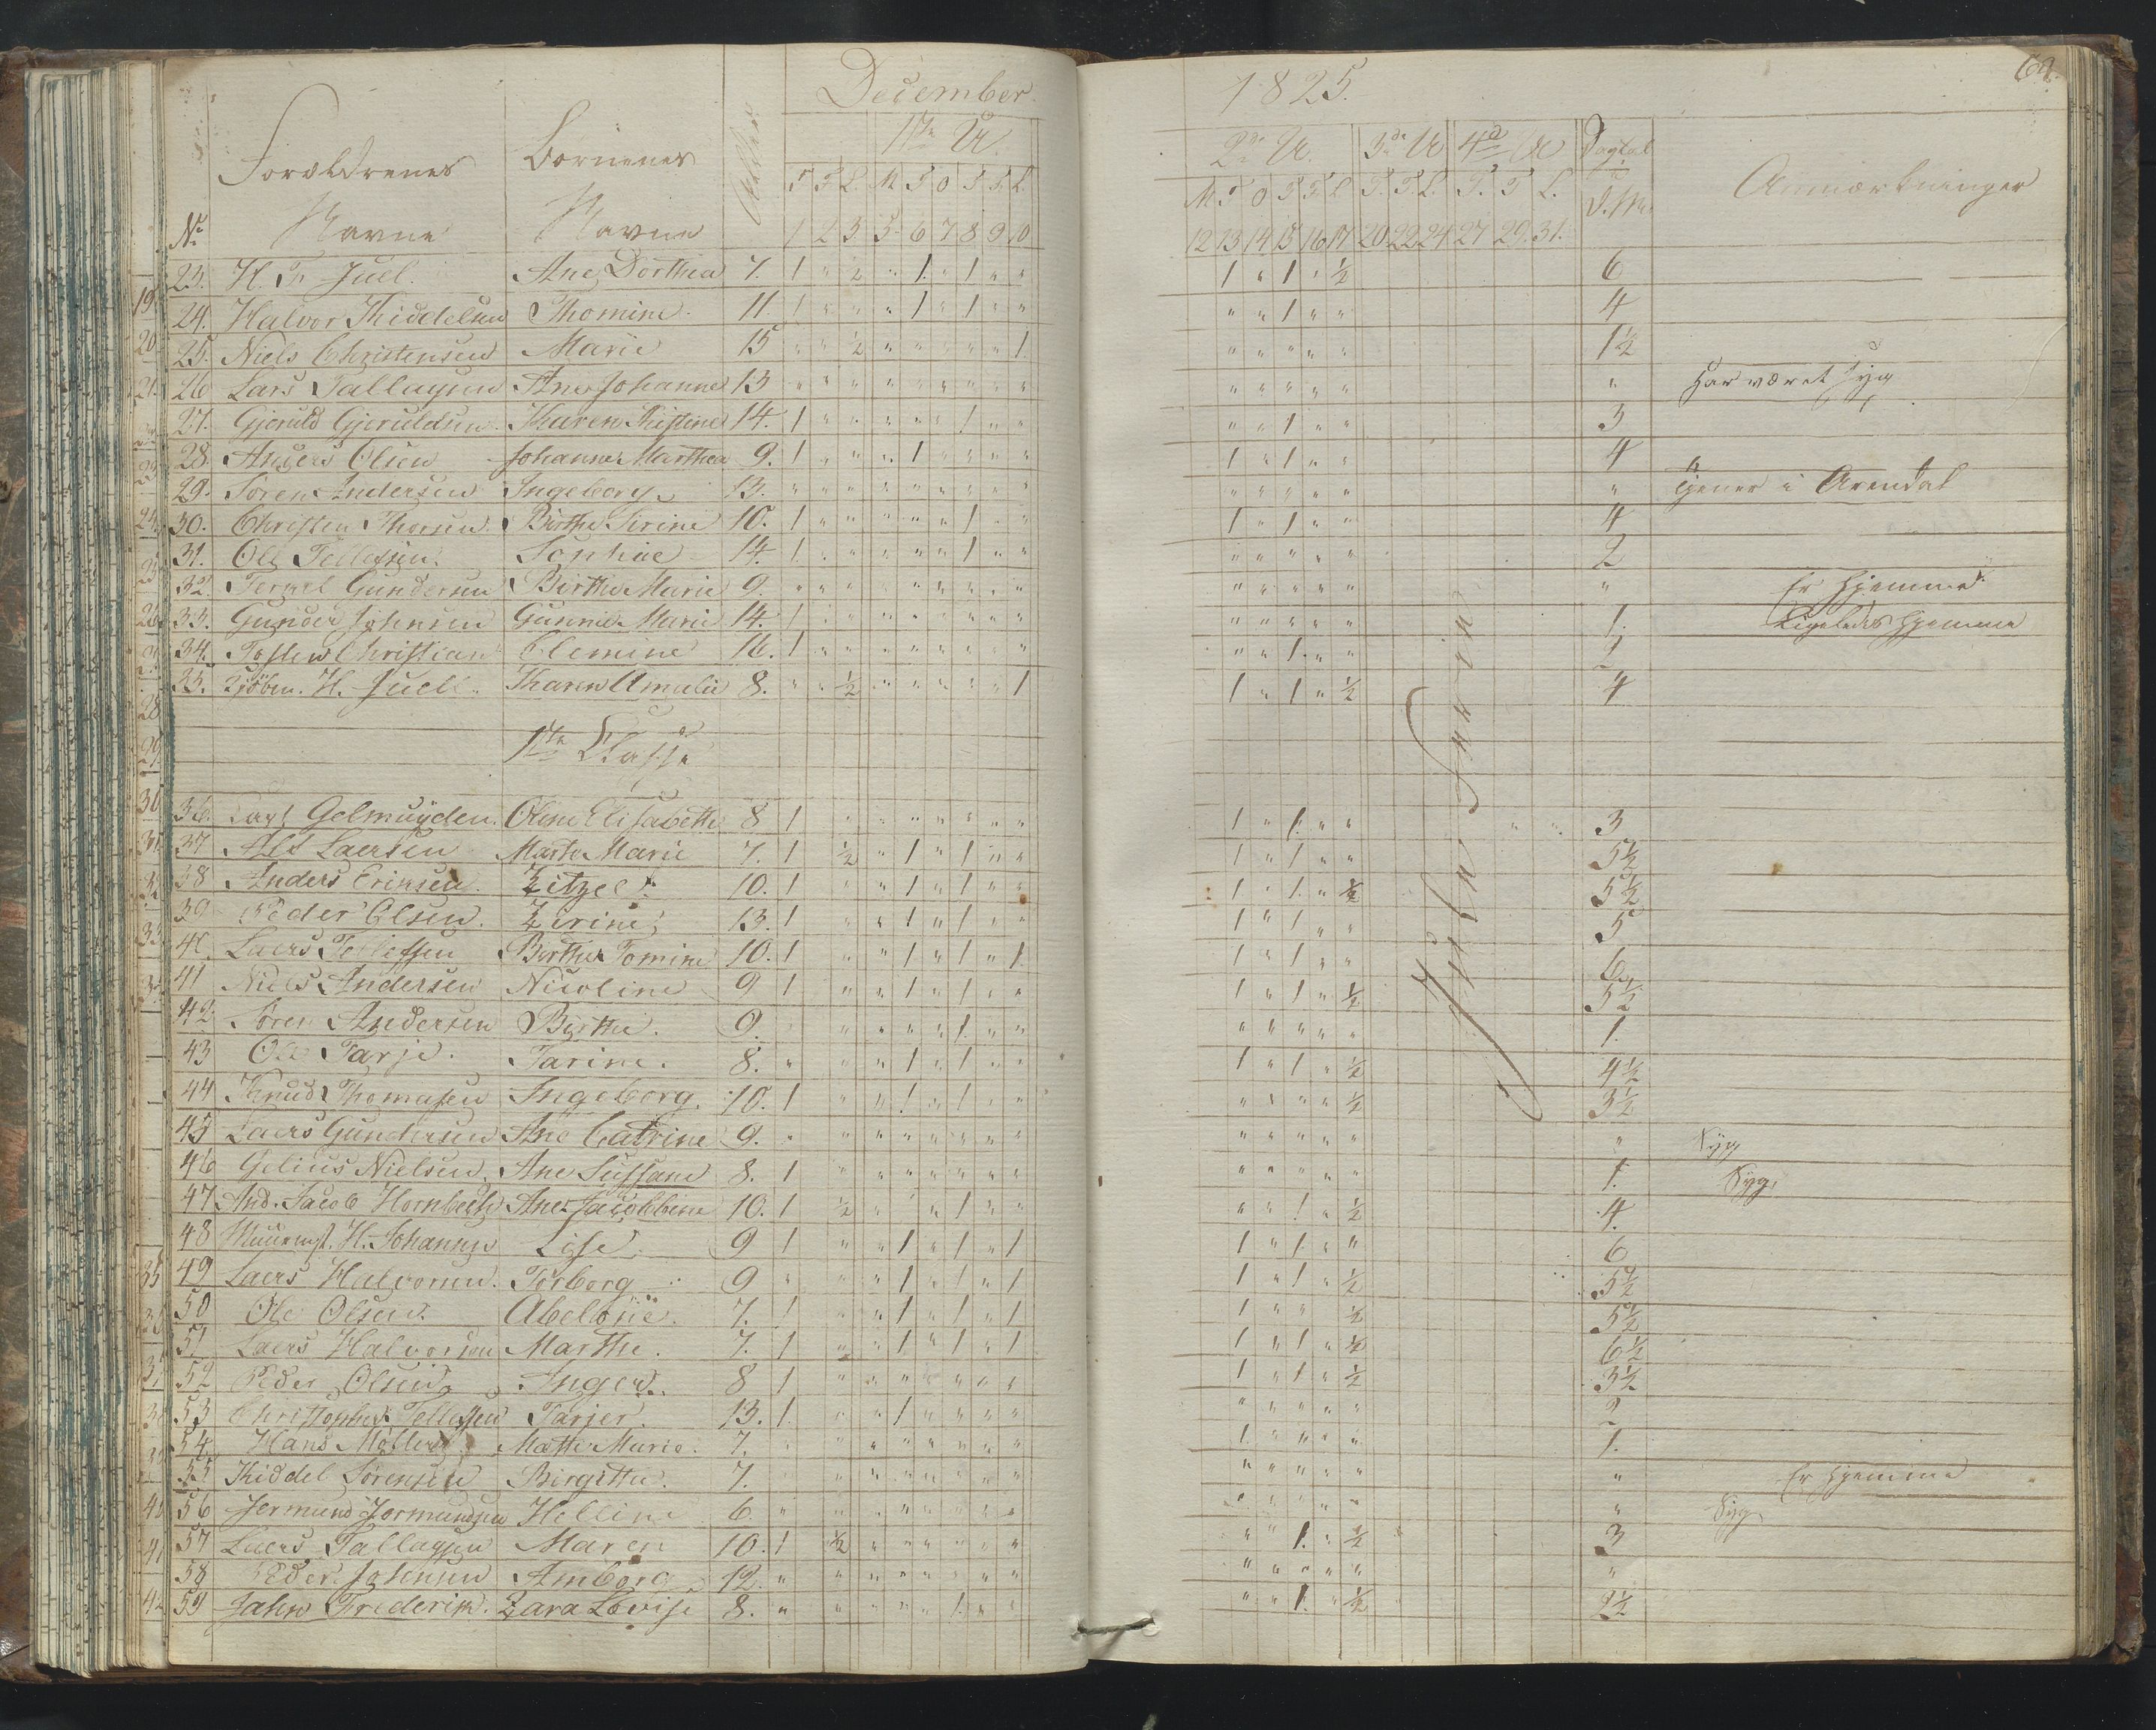 December 1825.
Forældrenes Navne Børnenes Navne Alder
1te U. 2den U. 3de U 4d U Dagtal Anmærkninger
T F L. M T O T F L. M T O T F L T. T. L. T. T L.
No 1 2 3 5 6 7 8 9 10 12 13 14 15 16 17 20 22 24 27 29 31.
23. H. T. Juel. Ane Dorthea 7. 1 " ½ " 1. " 1 " " 1 " 1 " ½ 6
24. Halvor Kiddelsen Thomine. 11. 1 " " " 1 " 1 " " " " 1 " " 4
25. Niels Christensen Marie 15 " " ½ " " " " " 1. " " " " " 1½
26 Lars Tallagsen Ane Johanne 13 " " " " " " " " " " " " " " " Har været syg
27. Gjeruld Gjeruldsen. Karen Kistine 14. 1 " " " " " 1 " " " " 1 " " 3
28. Anders Olsen Johanne Marthea 9. 1 " " " 1 " " " " 1 " 1 " " 4
29. Søren Andersen Ingeborg 13. " " " " " " " " " " " " " " " tjener i Arendal
30. Christen Thorsen Birthe Sirine 10. 1 " " " " " 1 " " 1 " 1 " " 4
31. Ole Tellefsen. Sophie 14. 1 " " " " " 1 " " " " " " " 2
32 Gundersen Birthe Marie 9. " " " " " " " " " " " " " " " Er hjemme
33. Gunder Johnsen Gunnild Marie 14. 1 " " " " " " " " " " " " " 1. Ligeledes hjemme
34. Tosten Christian Clemine 16. 1 " " " " " " " " " " 1 " " 2
35. H. Juell. Karen Amalie 8. " " ½ " " " " " 1 1 " 1 " ½ 4
1te Classe
36. Gelmuyden. Oline Elisabeth 8 1 " " " " " " " 1 " 1. " " 3
37 Als Laersen Marte Marie 7. 1 ½ " 1 " 1 " " 1 " 1 " " 5½
38 Anders Eriksen. Zitzel. 10. 1 " " 1 " 1 " " 1 " 1. " ½ 5½
39 Peder Olsen. Zirine 13. 1 " " 1 " 1 " " 1 " 1 " " 5
40. Laers Tellefsen Birthe Tomine 10. 1 " " 1 " 1 " 1 1 " 1 " " 6
41 Niels Andersen Nicoline 9 1 " " 1 " 1 " " 1 " 1 " ½ 5½
42 Søren Andersen Birthe. 9. " " " " 1. " " " " " " " 1.
43 Ole Tarje. Tarine. 8. " " " 1 " 1 " " 1 " 1 " ½ 4½
44 Knud Thomasen Ingeborg 10. 1 " " 1 " 1 " " " " " " ½ 3½
45 Laers Gundersen Ane Catrine 9. " " " " " " " " " " " " " " Syg
46 Gelius Nielsen. Ane Sussane 8. 1 " " " " " " " " " " " " 1. Syg
47 And. Jacob Hornbeck Ane Jacobbine 10. 1 ½ " " " 1 " " " " 1 " ½ 4.
48 H. Johannes Lise 9 1 " " 1 " 1 " 1 1 " 1. " " 6
49 Laers Halvorsen. Torborg 9 " " " 1 " 1 " 1 1 " 1 " ½ 5½
50 Ole Olsen. Abelone. 7. 1 " " 1 " 1 " 1 1 " " " ½ 5½
51 Laers Halvorsen Marthe. 7. 1 " " 1 " 1 " 1 1 " 1 " ½ 6½
52 Peder Olsen Inger. 8 1 " " " " " " " 1 " 1 " ½ 3½
53 Christopher Tellefsen Tarjer. 13. 1. " " 1 " " " " " " " " " 2
54. Hans Møller Mathe Marie. 7. " " " " " " " " 1. " " " " 1.
55 Kiddel Sørensen Birgitte. 7. " " " " " " " " " " " " " " Er hjemme
56 Jermund Jermundsen Helline 6 " " " " " " " " " " " " " " Syg
57 Laers Tallagsen Maren 10. 1 ½ " " " " " " " " 1. " ½ 3
58 Peder Johnsen Amborg 12. " " " " " " " " " " " " " "
59 Jahn Frederik. Zara Lovise 8. " " " " " 1. " " " " 1. " ½ 2½